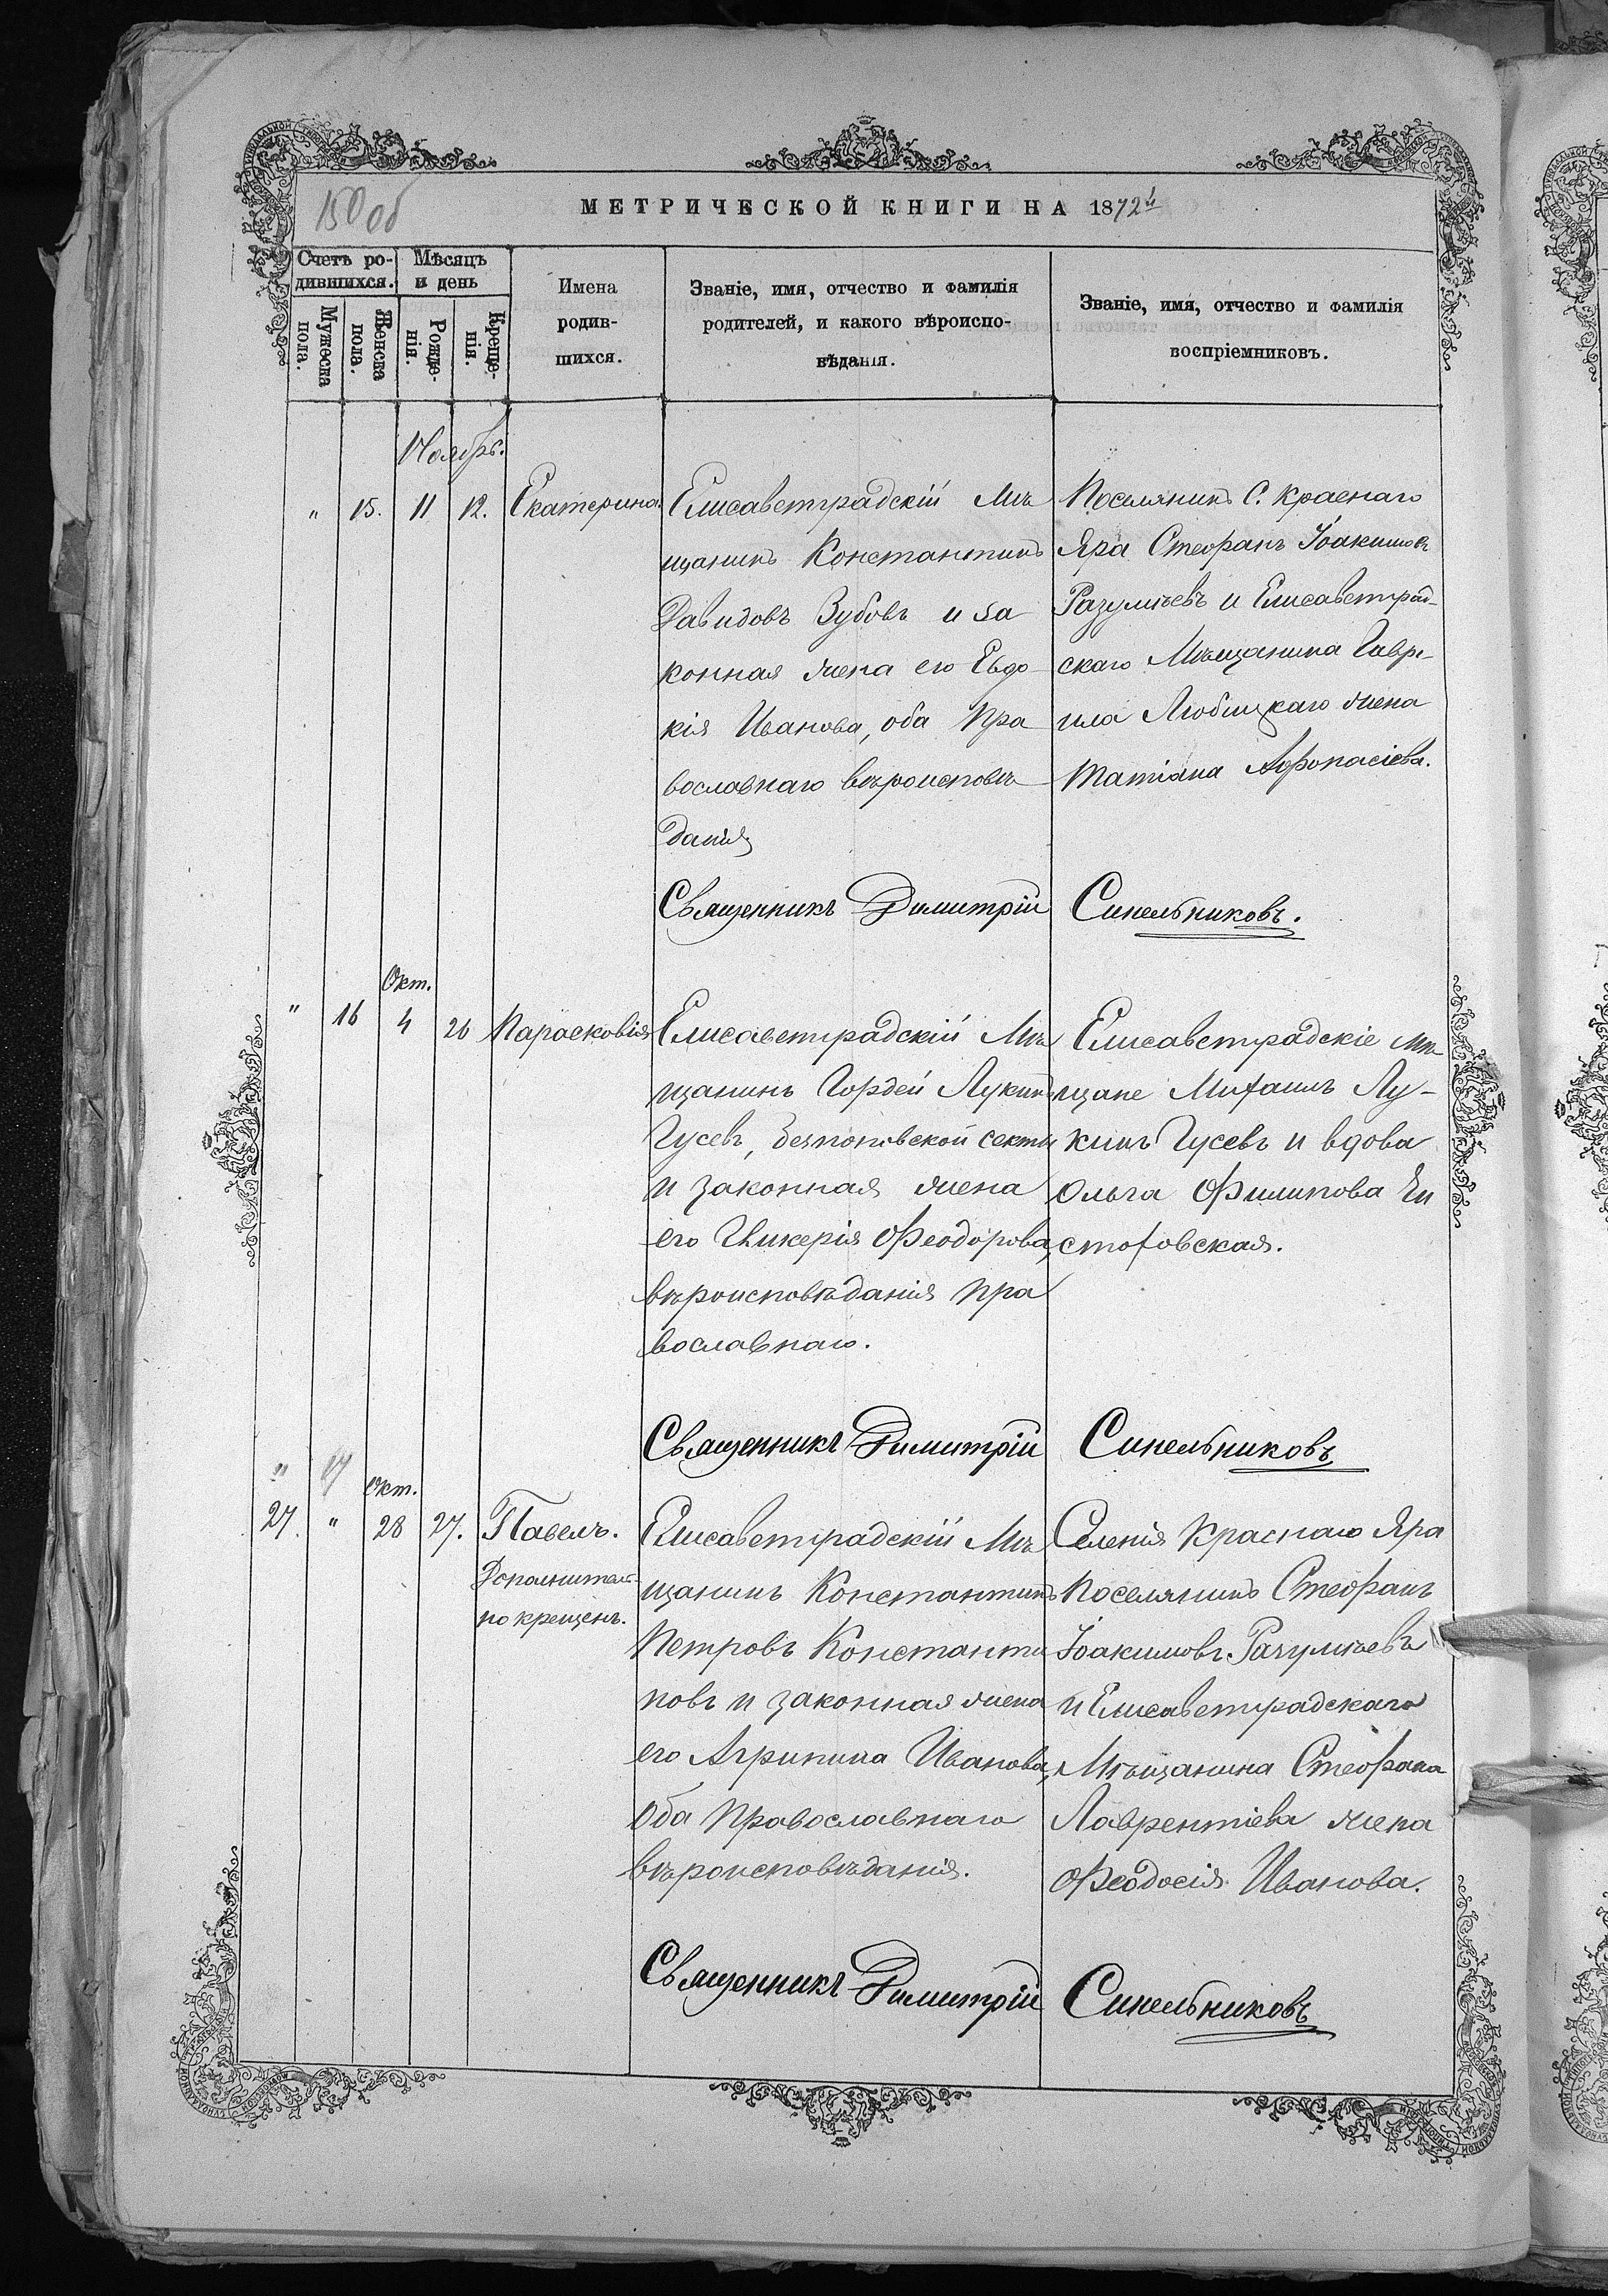 150 об
МЕТРИЧЕСКОЙ КНИГИ НА 1872й
Счетъ ро-
дившихся.
Мѣсяцъ
и день
Мужеска
пола.
Женска
пола.
Рожде-
нія.
Креще-
нія.
Имена
родив-
шихся.
Званіе, имя, отчество и фамилія
родителей, и какого вѣроиспо-
вѣданія.
Званіе, имя, отчество и фамилія
воспріемниковъ.
Ноябрь.
" 15. 11 12. Екатерина.
Елисаветградскій Мѣ
щанинъ Константинъ
Давидовъ Зубовъ и за
конная жена его Евдо
кія Иванова, оба Пра
вославнаго вѣроисповѣ
данія
Поселянинъ С. Краснаго
Яра Стефанъ Іоакимовъ
Разумѣевъ и Елисаветград-
скаго Мѣщанина Гаврі-
ила Любицкаго жена
Татіана Афонасіева.
Священникъ Димитрій Синельниковъ.
Окт.
" 16 4 26 Парасковія
Елисаветградскій Мѣ
щанинъ Гордей Лукинъ
Гусевъ, безпоповской секты
и законная жена
его Гликерія Феодорова,
вѣроисповѣданія пра
вославнаго.
Елисаветградскіе мѣ-
щане Михаилъ Лу-
кинъ Гусевъ и вдова
Ольга Филипова Чи
стоховская.
Священникъ Димитрій Синельниковъ
" 17
Окт.
27. " 28 27. Павелъ.
Дополнитель-
но крещенъ.
Елисаветградскій Мѣ
щанинъ Константинъ
Петровъ Константи
новъ и законная жена
его Агрипина Иванова,
Оба Православнаго
вѣроисповѣданія.
Селенія Краснаго Яра
Поселянинъ Стефанъ
Іоакимовъ Разумѣевъ
и Елисаветградскаго
Мѣщанина Стефана
Лаврентіева жена
Феодосія Иванова.
Священникъ Димитрій Синельниковъ